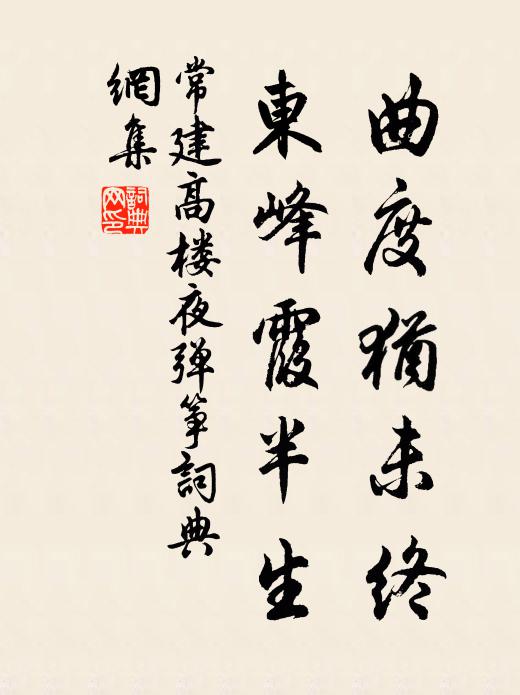 曲度猶未终
東峰霞半生
常建高楼夜弹筝詞典
網集
詞典
网印